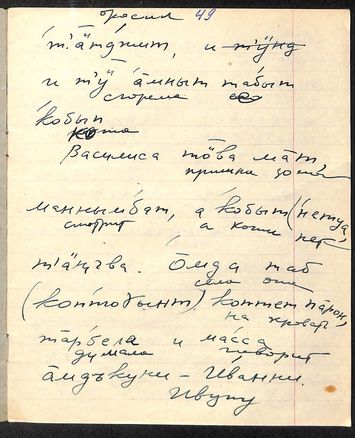 бросил 49
т'ӓ́нджит, и т'ӱнд
и т'ӱ ӓ́мныт табыт
сгорела ее
ко́бып
Василиса тӧ́ва ма̄т,
пришла домой
манны́мбат, а ко́быт (нетуа́
смотрит а кожи нет
т'а́ӈгва. О́мда таб
села она
(коптоɣынт) коптет па̄рон,
на кровать
та́рбела и ма́сса
думала говорит
ӓмдъкуни – Ива́нни.
Ивану